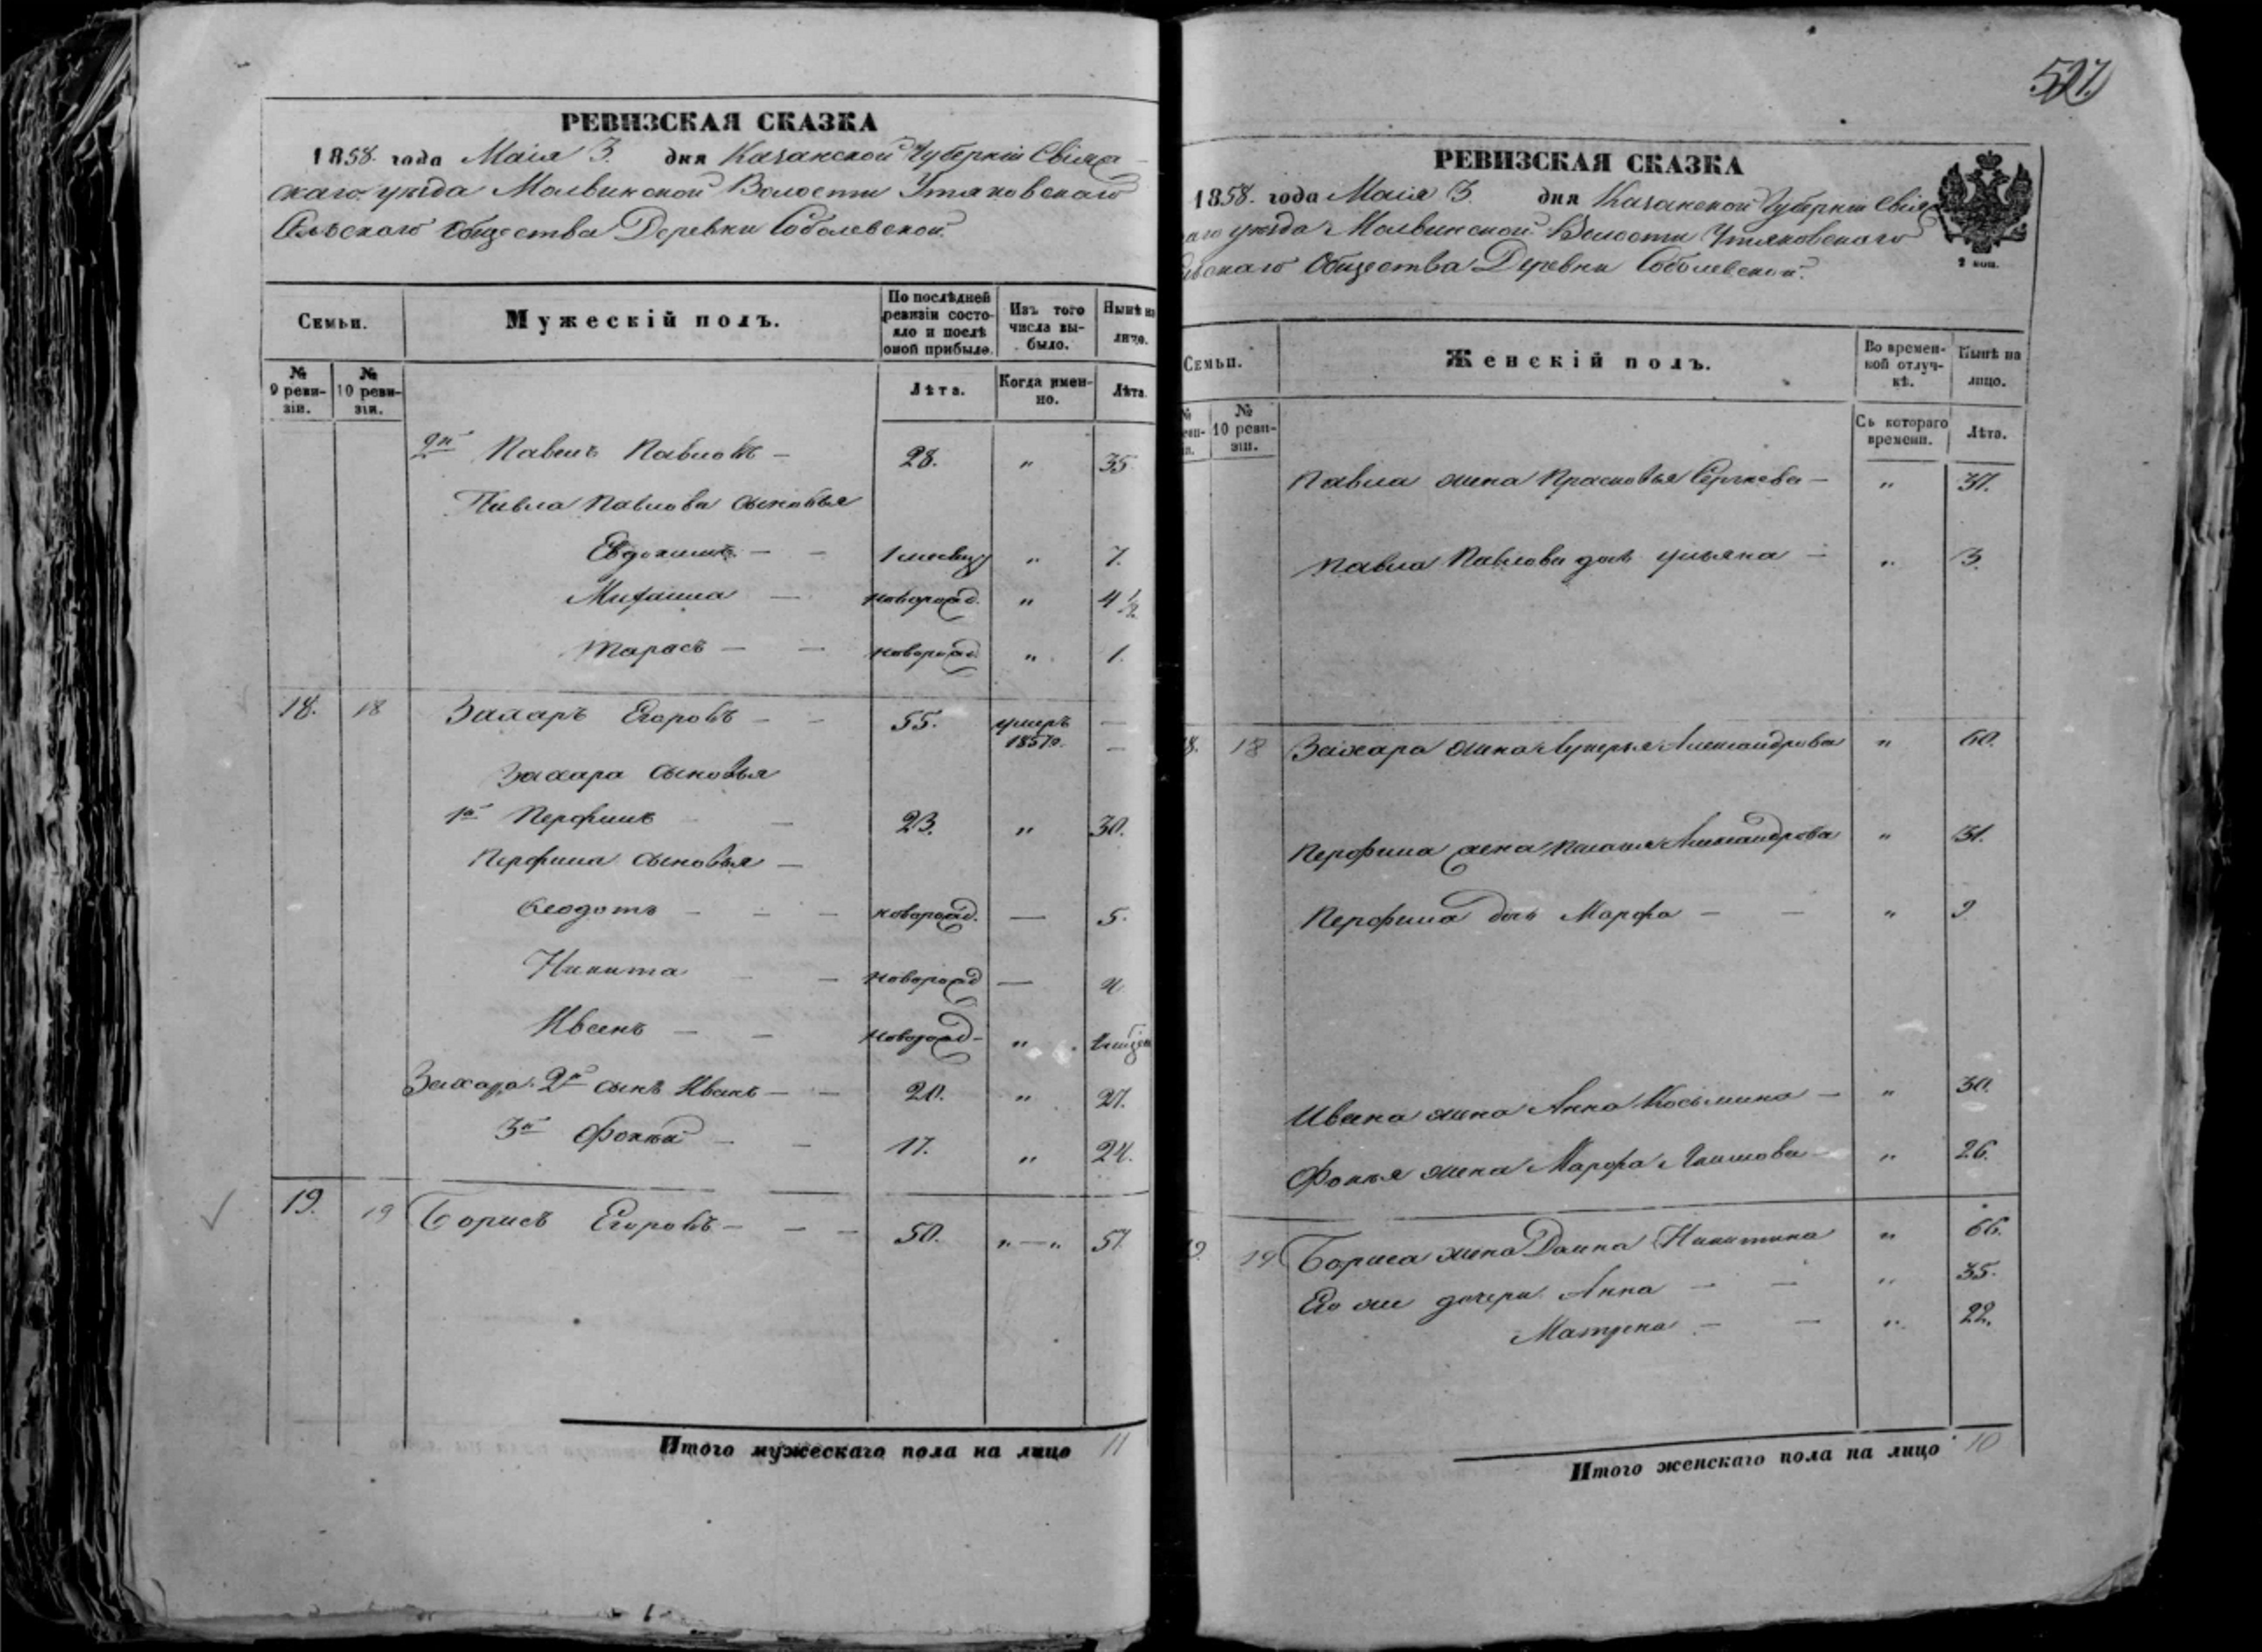 РЕВИЗСКАЯ СКАЗКА
1858. года Маія 3. дня Казанской Губерніи Свіяж
скаго уѣзда Молвинской Волости Утяковскаго
Сельскаго Общества Деревни Соболевской
Семьи.
Мужескій полъ.
По послѣдней ревизіи состояло и послѣ оной прибыло.
Изъ того числа выбыло.
Нынѣ на лицо.
№ 9 ревизіи.
№ 10 ревизіи.
Лѣта.
Когда именно.
Лѣта.
2й Павелъ Павловъ — 28. „ 35
Павла Павлова сыновья
Евдокимъ — — 1 месяцъ „ 7.
Михаила — новорожд. „ 4 1/2
Тарасъ — — новорожд. „ 1.
18. 18 Захаръ Егоровъ — — 55. умеръ 1857го. —
Захара сыновья
1й Перфилъ — 23. „ 30.
Перфила сыновья —
Ѳеодотъ — — — новорожд. — 5.
Никита — — новорожд —
Иванъ — — новорожд — „
Захара 2й сынъ Иванъ — — 20. „ 27.
3й Фокѣй — — 17. „ 24.
19. 19 Борисъ Егоровъ — — — 50. „—„ 57
Итого мужескаго пола на лицо 11
527
РЕВИЗСКАЯ СКАЗКА
1858. года Маія 3. дня Казанской Губерніи Свіяж
аго уѣзда Молвинской Волости Утяковскаго
Общества Деревни Соболевской.
2 коп.
Семьи.
Женскій полъ.
Во временной отлучкѣ.
Нынѣ на лицо.
№
№ 10 ревизіи.
Съ котораго времени.
Лѣта.
Павла жена Прасковья Сергѣева — „ 37.
Павла Павлова дочь Ульяна — „ 3.
8. 18 Захара жена Лукерья Александрова „ 60.
Перфила жена Пелагея Александрова „ 31.
Перфила дочь Марфа — — „ 9
Ивана жена Анна Косьмина — „ 30.
Фокѣя жена Марфа — „ 26.
9. 19 Бориса жена Домна Никитина „ 66.
Его же дочери Анна — — „ 35.
Матрена — — „ 22.
Итого женскаго пола на лицо 10